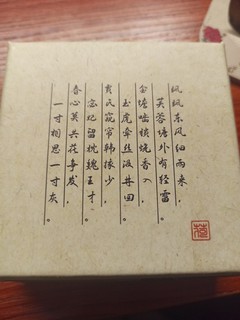 飒飒东风细雨来，
芙蓉塘外有轻雷。
金蟾啮锁烧香入，
玉虎牵丝汲井回。
贾氏窥帘韩掾少，
宓妃留枕魏王才。
春心莫共花争发，
一寸相思一寸灰。